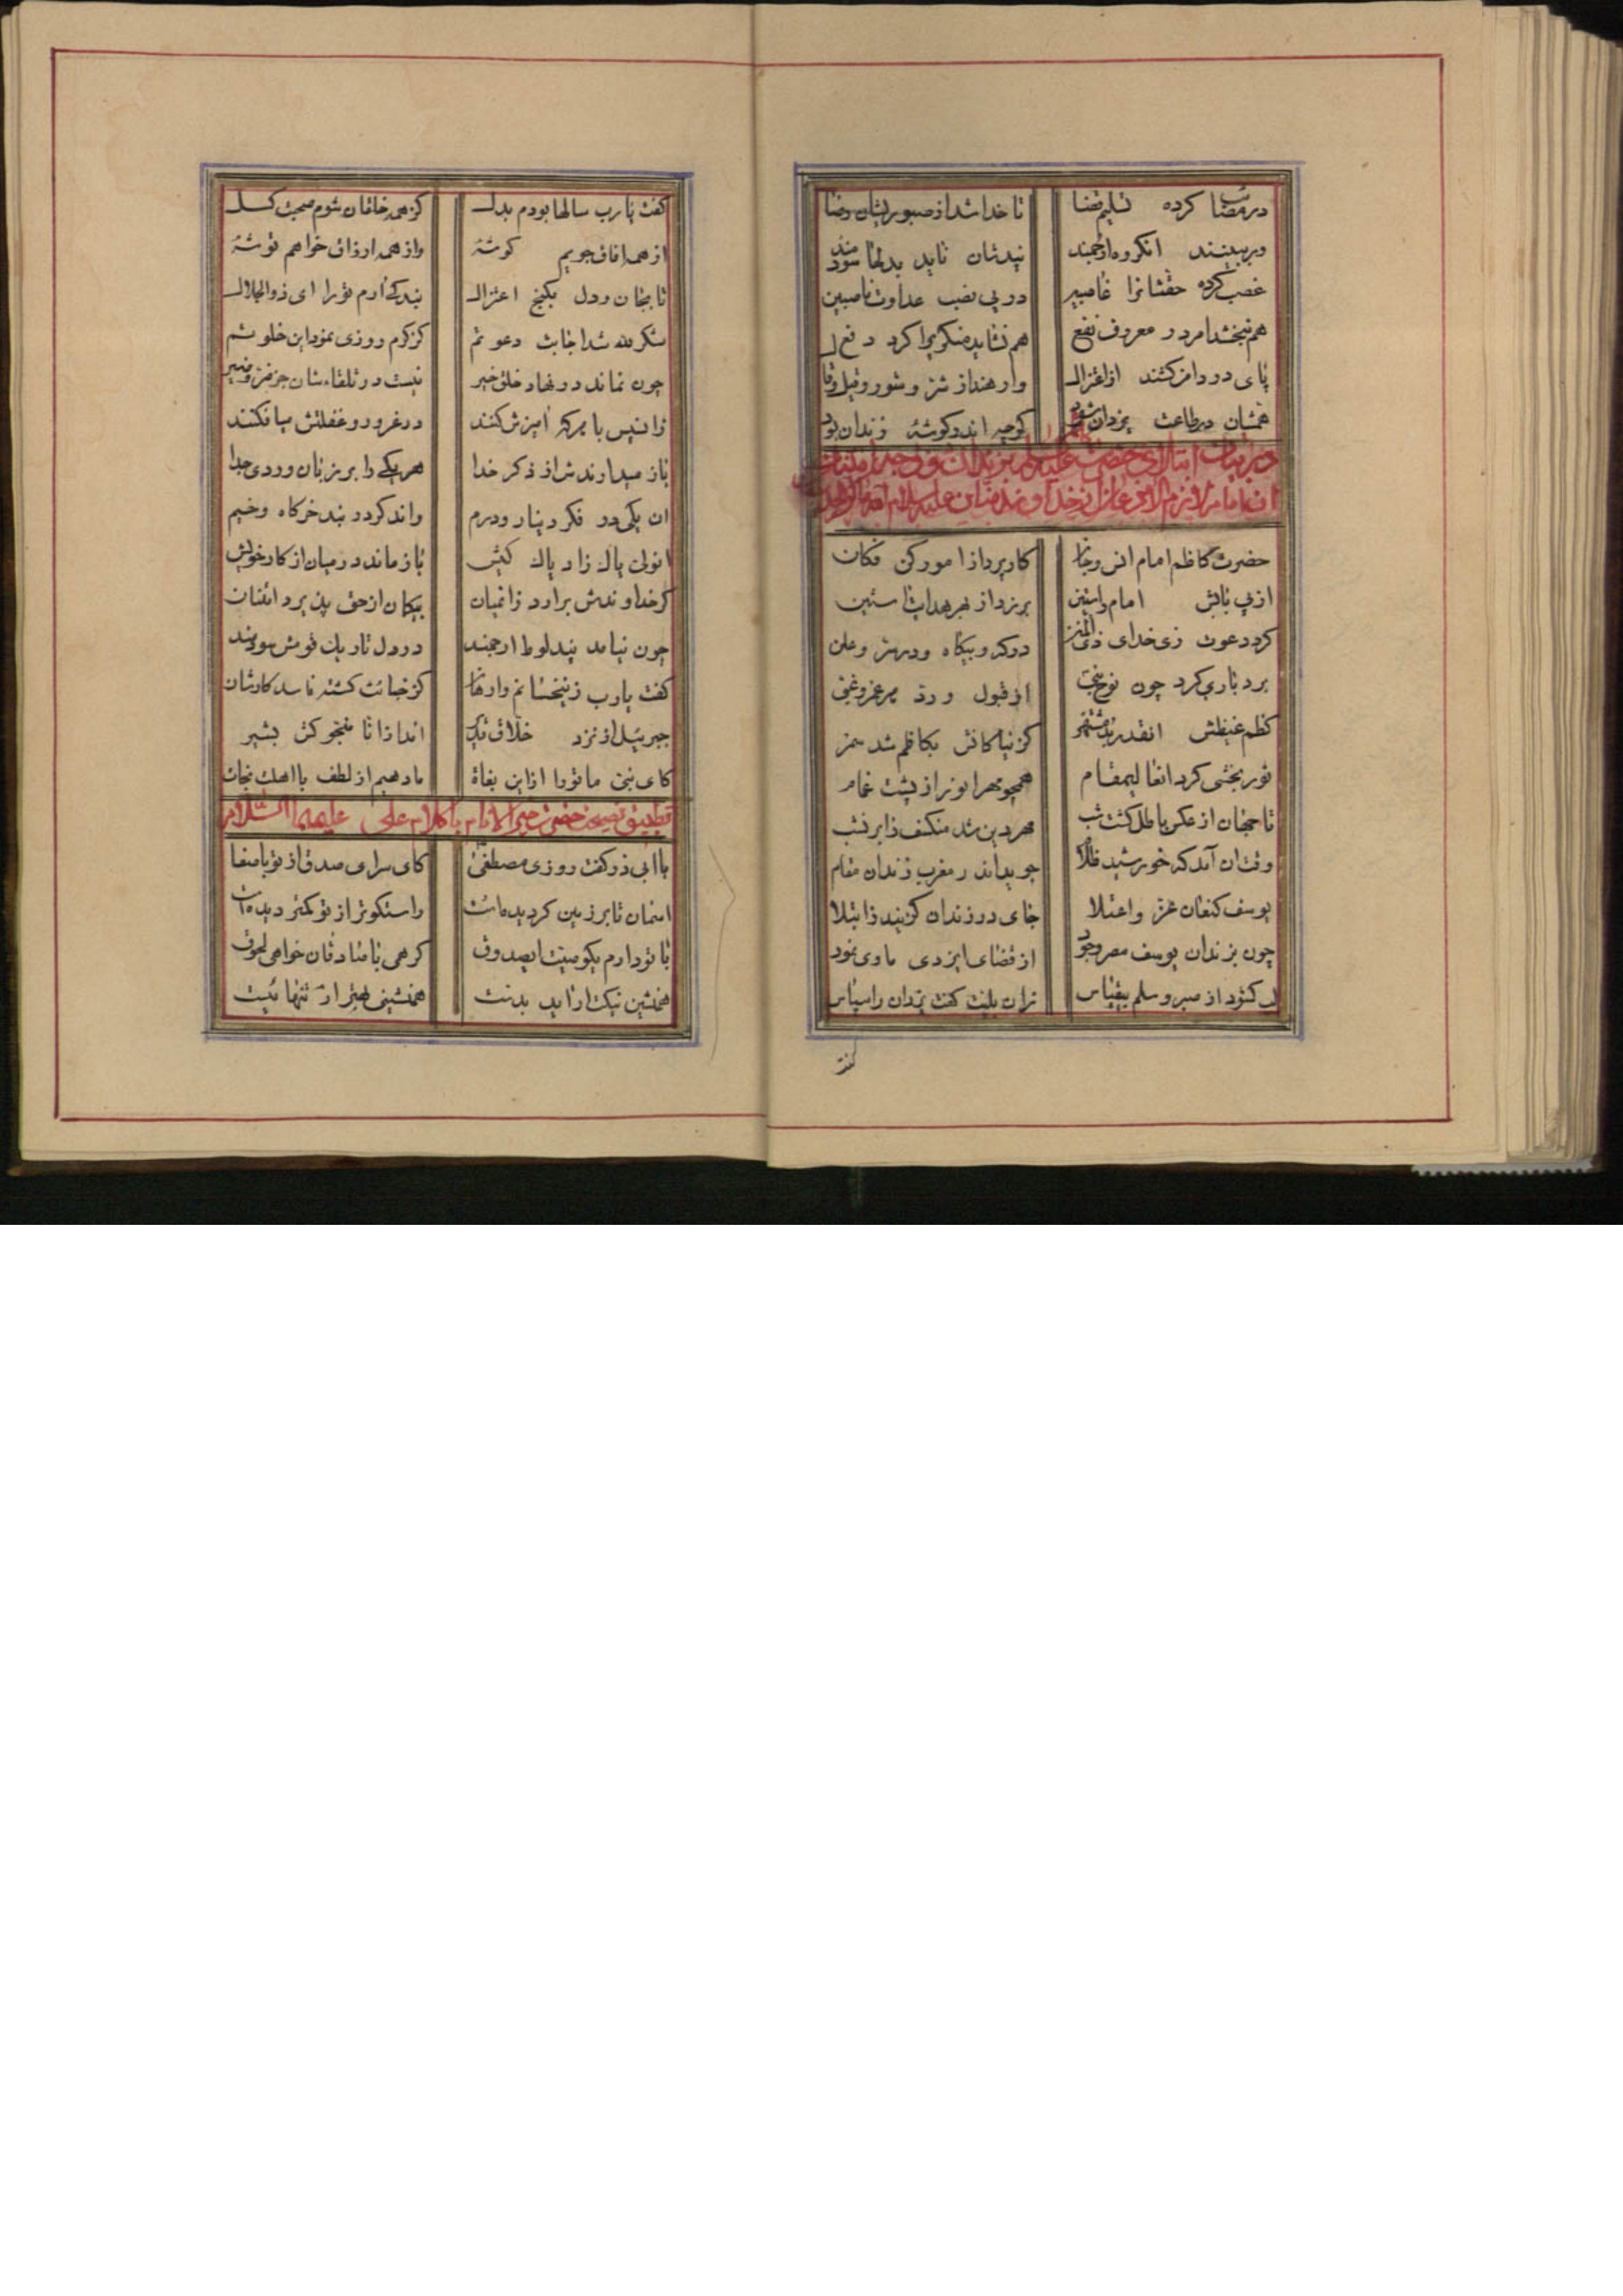 در مصائب کرده تسلیم قضا تا خدا شد از صبوریشان رضا
ور ببینند انکروه ارجمند پندشان ناید بدلها سودمند
غصب کرده حقشانرا غاصبین در پی نصب عداوت ناصبین
هم نبخشد امر در معروف نفع هم نشاید منکریرا کرد دفع
پای در دامن کشند از اعتزال وارهند از شر و شور و قیل و قال
همشان در طاعت یزدان شود کرچه اندر کوشهٔ زندان بود
در بیان ابتلای حضرت علیه السلام بزندان
حضرت کاظم امام انس و جان کارپرداز امور کن فکان
از پی بابش امام راستین برزد از بهر هدایت آستین
کرد دعوت زی خدای ذی المنن در که و بیکاه و در سر و علن
بردباری کرد چون نوح نجی از قبول و رد هر غر و غبی
کظم غیظش انقدر بد مشتهر کز نیاکانش بکاظم شد سمر
نوربخشی کرد انعالیمقام همچو مهر انور از پشت غمام
تا جهان از عکر باطل کشت شب مهر دین شد منکسف ذا بر نشب
وقت ان آمد که خورشید فلک جوید اندر مغرب زندان مقام
یوسف کنعان عز و اعتلا جای در زندان کزیند ز ابتلا
چون بزندان یوسف مصر وجود از قضای ایزدی ماوی نمود
لب کشود از صبر و سلم بیقیاس زان بلیت کفت یزدان را سپاس
کفت
کفت یارب سالها بودم بدل کز همه خلقان شوم صحبت کسل
از همه افاق جویم کوشهٔ واز همه ارزاق خواهم توشهٔ
تا بجان و دل بکنج اعتزال بندکی ارم تو را ای ذوالجلال
شکر لله شد اجابت دعوتم کز کرم روزی نمود این خلوتم
چون نماند در نهاد خلق خیر نیست در تلقاءشان جز ضر و ضیر
زانپس با هر که امیزش کنند در غرور و غفلتش میافکنند
باز میدارندش از ذکر خدا هر یکی را بر زبان وردی جدا
ان یکی در فکر دینار و درم واند کر در بند خرکاه و خیم
انولی پاک زاد پاک کیش باز ماند در میان از کار خویش
کر خداوندش برارد زانمیان بیکمان از حق پذیرد امتنان
چون نیامد پند لوط ارجمند در دل تاریک قومش سودمند
کفت یارب زین خسانم وارهان کز خباثت کشته فاسد کارشان
جبرئیل از نزد خلاق قدیر
کای نبی ما تو را از این بغاة ما دهیم از لطف با اهلت نجات
تطبیق نصیحت حضرت خیر الانام با کلام علی علیهما السلام
با ابی ذر کفت روزی مصطفی کای سرای صدق از تو با صفا
اسمان تا بر زمین کردیده است راستکوتر از تو کمتر دیده است
با تو دارم یکوصیت ایصدوق کر همی با صادقان خواهی لحوق
همنشین نیکت ار ناید بدست همنشینی بهتر از تنهائیست